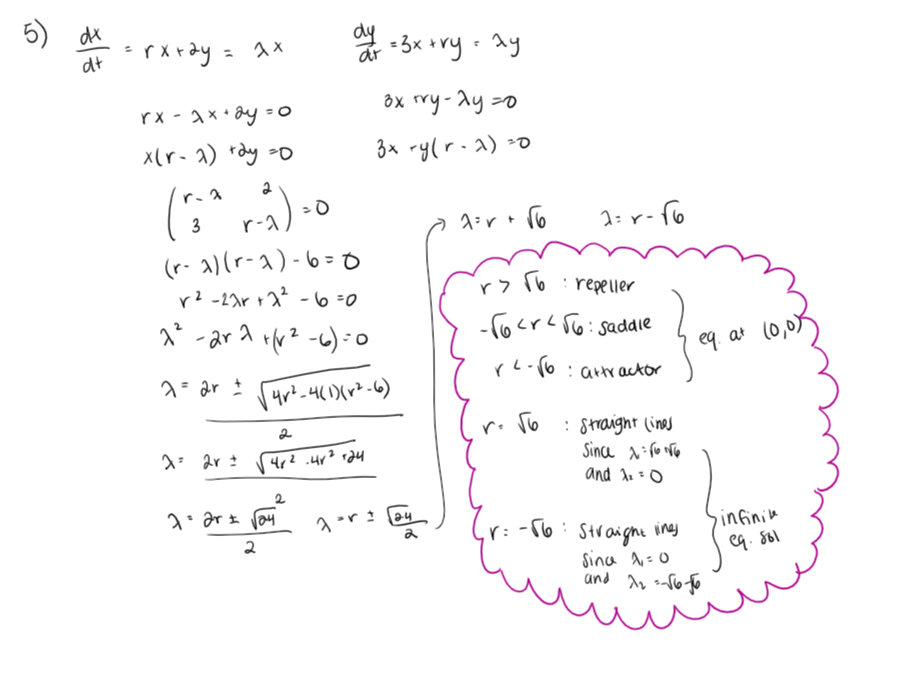 5) dx/dt = rx + 2y = λx    dy/dt = 3x + ry = λy
rx - λx + 2y = 0    3x + ry - λy = 0
x(r - λ) + 2y = 0    3x + y(r - λ) = 0
(r - λ  2
3  r - λ) = 0
(r - λ)(r - λ) - 6 = 0
r² - 2λr + λ² - 6 = 0
λ² - 2rλ + (r² - 6) = 0
λ = 2r ± √(4r² - 4(1)(r² - 6)) / 2
λ = 2r ± √(4r² - 4r² + 24) / 2
λ = 2r ± √24 / 2    λ = r ± √24 / 2
→ λ = r + √6    λ = r - √6
r > √6 : repeller
-√6 < r < √6 : saddle
r < -√6 : attractor
} eq. at (0,0)
r = √6 : straight lines
since λ₁ = √6 + √6
and λ₂ = 0
r = -√6 : straight lines
since λ₁ = 0
and λ₂ = -√6 - √6
} infinite
eq. sol